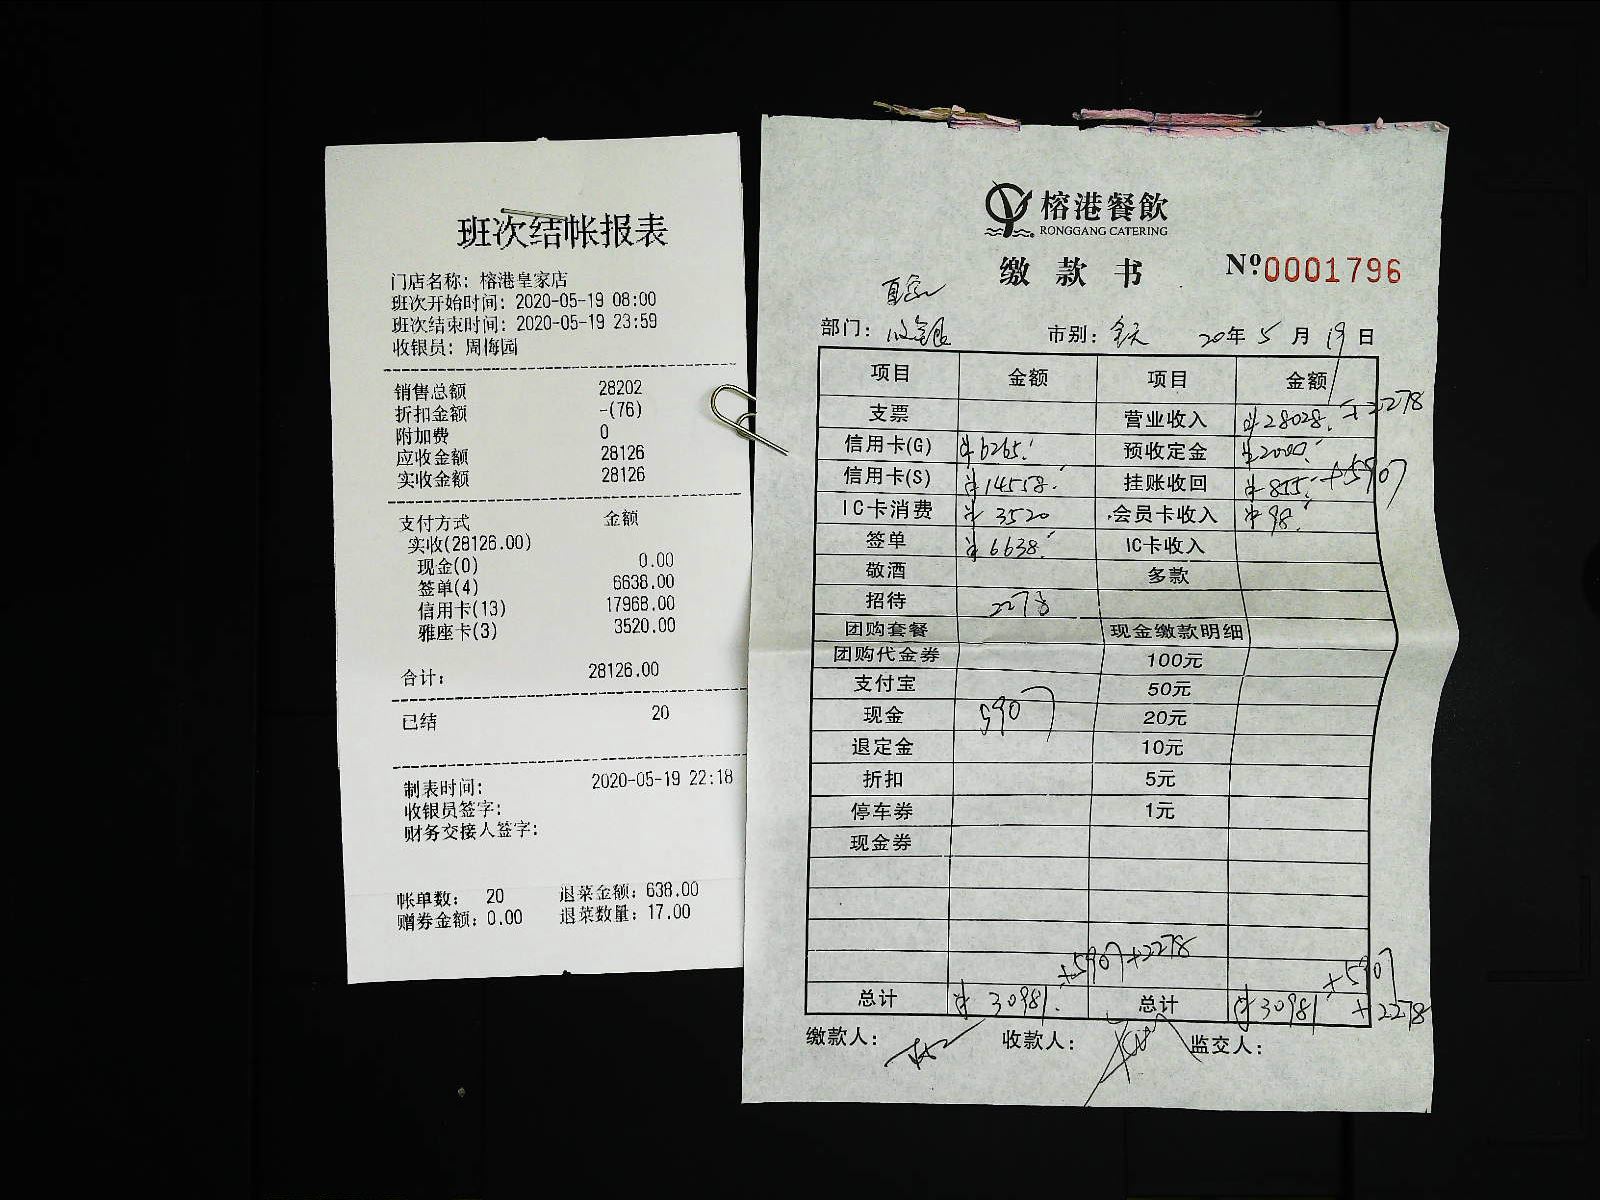 班次结帐报表
门店名称: 榕港皇家店
班次开始时间: 2020-05-19 08:00
班次结束时间: 2020-05-19 23:59
收银员: 周梅园
销售总额 28202
折扣金额 -(76)
附加费 0
应收金额 28126
实收金额 28126
支付方式 金额
实收(28126.00)
现金(0) 0.00
签单(4) 6638.00
信用卡(13) 17968.00
雅座卡(3) 3520.00
合计: 28126.00
已结 20
制表时间: 2020-05-19 22:18
收银员签字:
财务交接人签字:
帐单数: 20 退菜金额: 638.00
赠券金额: 0.00 退菜数量: 17.00
榕港餐飲
RONGGANG CATERING
缴款书 Nº0001796
部门: 市别: 全天 20年 5月 19日
项目 金额 项目 金额
支票 营业收入 ¥28028. +2278
信用卡(G) ¥6265. 预收定金 ¥2000.
信用卡(S) ¥14558. 挂账收回 ¥855. +5907
IC卡消费 ¥3520 会员卡收入 ¥98.
签单 ¥6638. IC卡收入
敬酒 多款
招待 2278
团购套餐 现金缴款明细
团购代金券 100元
支付宝 50元
现金 5907 20元
退定金 10元
折扣 5元
停车券 1元
现金券
+5907+2278 +5907
总计 ¥30981. 总计 ¥30981 +2278
缴款人: 收款人: 监交人: